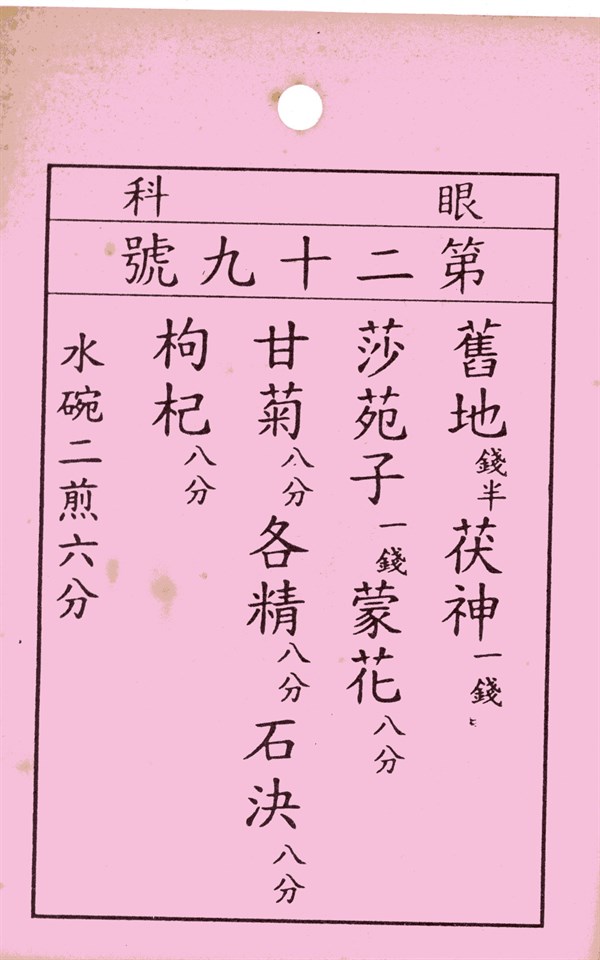 眼科
第二十九號
舊地錢半茯神一錢
莎苑子一錢蒙花八分
甘菊八分各精八分石決八分
枸杞八分
水碗二煎六分